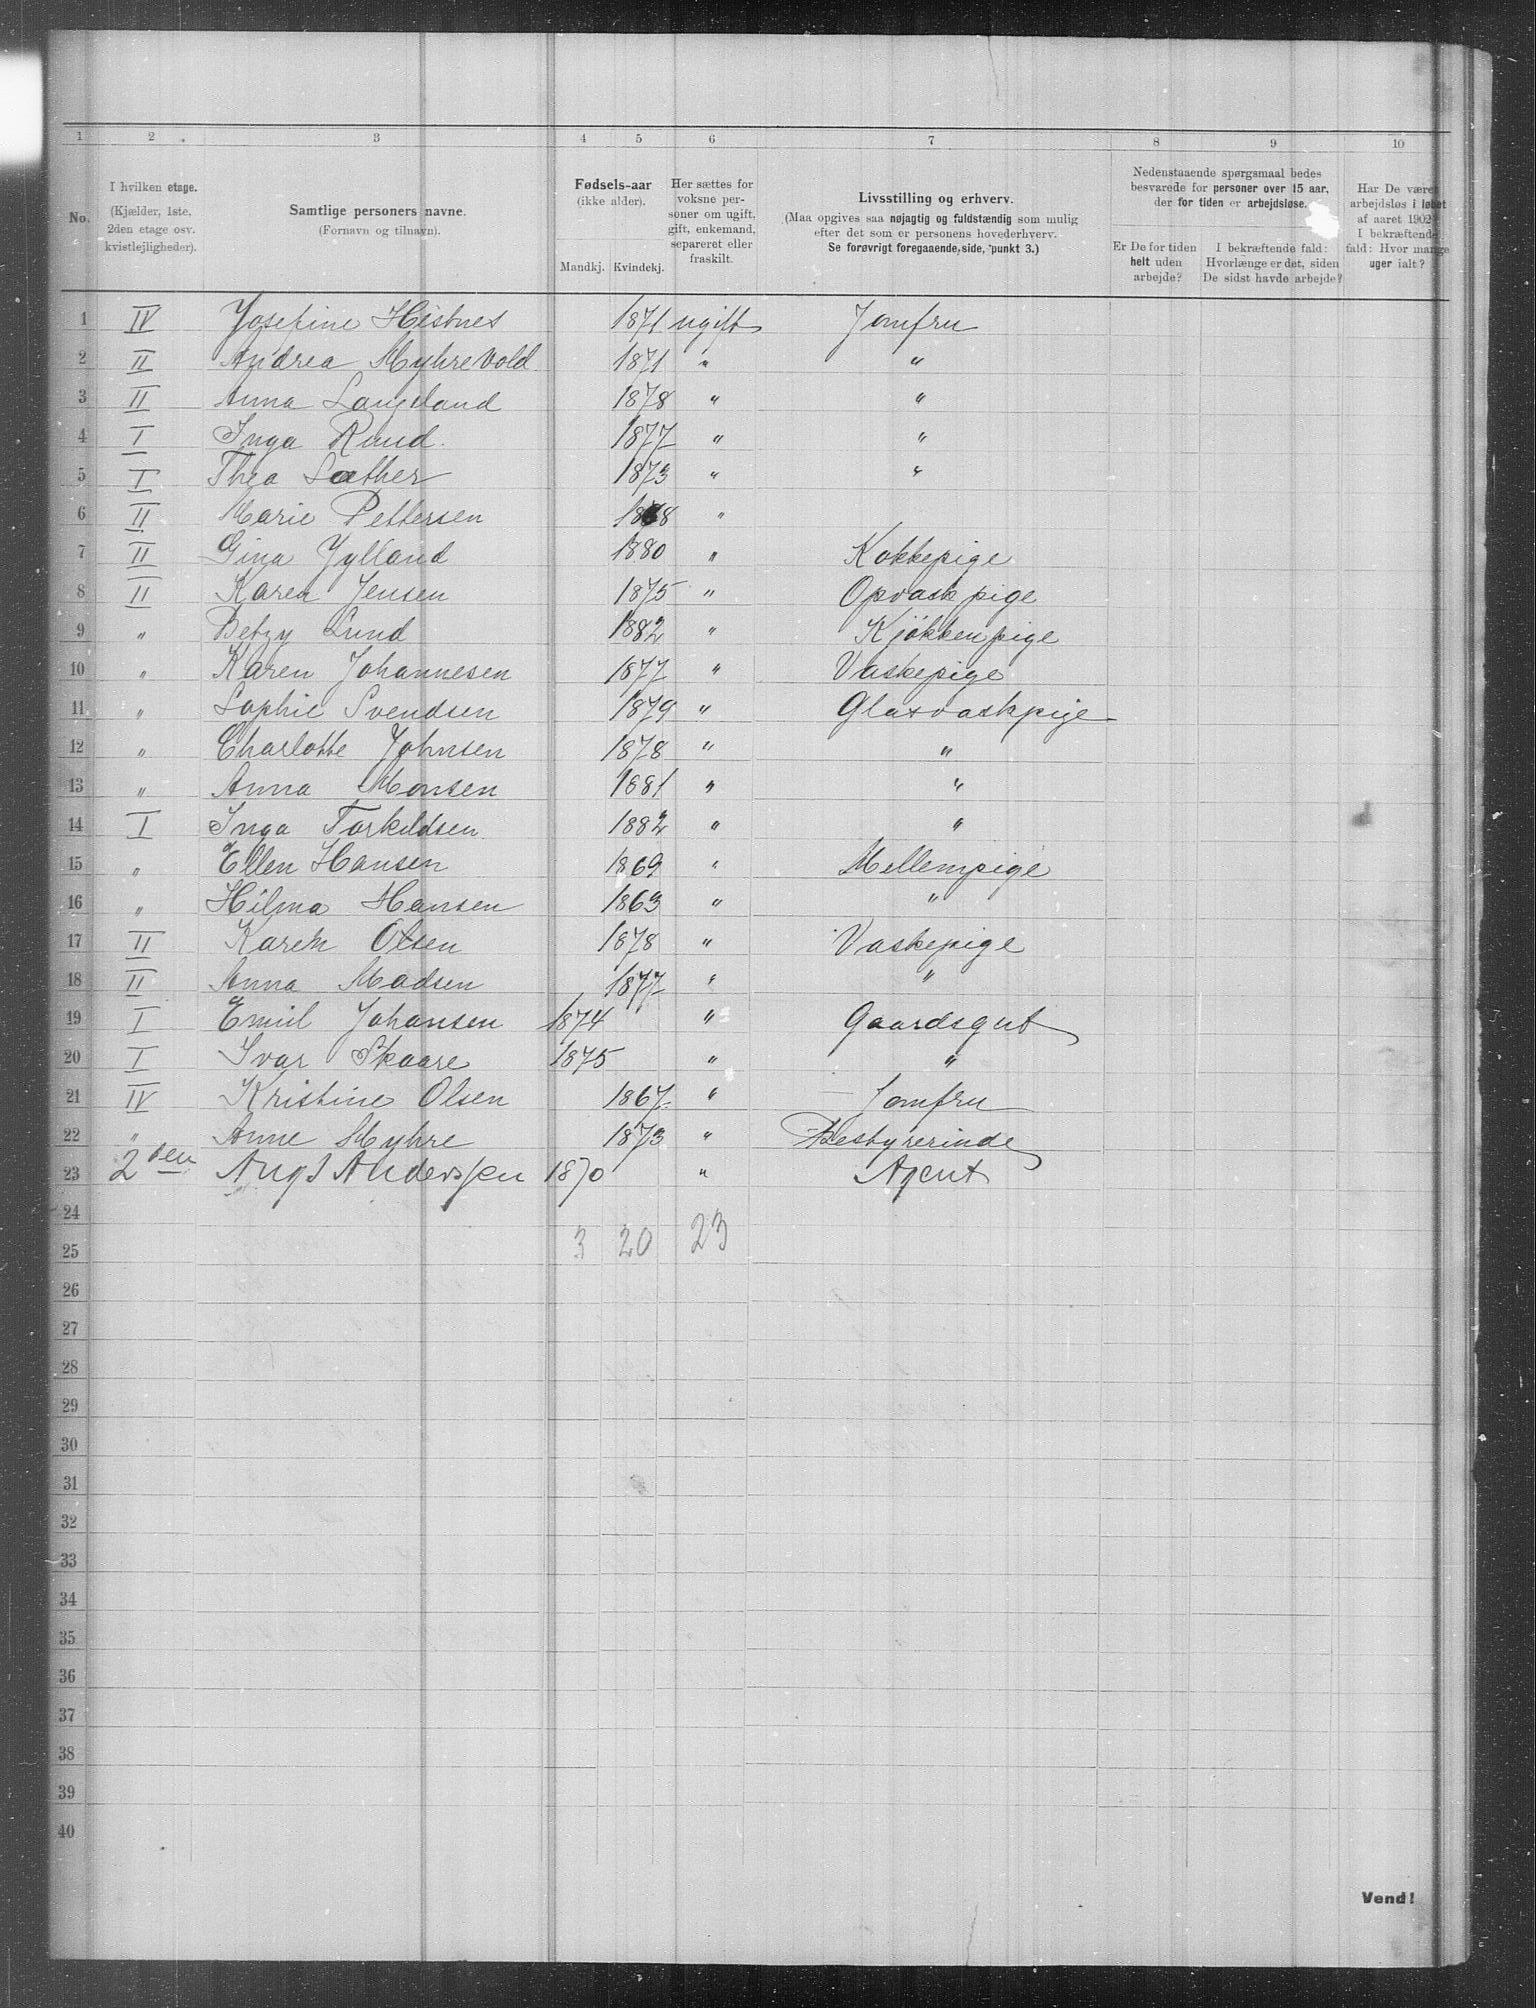 1 2 3 4 5 6 7 8 9 10
No.
I hvilken etage.
(Kjælder, 1ste,
2den etage osv.
kvistlejligheder).
Samtlige personers navne.
(Fornavn og tilnavn).
Fødsels-aar
(ikke alder).
Mandkj. Kvindekj.
Her sættes for
voksne per-
soner om ugift,
gift, enkemand,
separeret eller
fraskilt.
Livsstilling og erhverv.
(Maa opgives saa nøjagtig og fuldstændig som mulig
efter det som er personens hovederhverv.
Se forøvrigt foregaaende side, punkt 3.)
Nedenstaaende spørgsmaal bedes
besvarede for personer over 15 aar,
der for tiden er arbejdsløse.
Er De for tiden
helt uden
arbejde?
I bekræftende fald:
Hvorlænge er det, siden
De sidst havde arbejde?
Har De været
arbejdsløs i løbet
af aaret 1902?
I bekræftende
fald: Hvor mange
uger ialt?
1 IV Josefine Histnes 1871 ugift Jomfru
2 II Andrea Myhrevold 1871 " "
3 II Anna Langeland 1878 " "
4 I Inga Ruud 1877 " "
5 I Thea Sæther 1873 " "
6 II Marie Pettersen 1878 "
7 II Gina Jylland 1880 " Kokkepige
8 II Karen Jensen 1875 " Opvaskpige
9 " Betzy Lund 1882 " Kjøkkenpige
10 " Karen Johannesen 1877 " Vaskepige
11 " Sophie Svendsen 1879 " Glasvaskpige
12 " Charlotte Johnsen 1878 " "
13 " Anna Monsen 1881 " "
14 I Inga Torkildsen 1882 " "
15 " Ellen Hansen 1869 " Mellempige
16 " Hilma Hansen 1863 " "
17 II Karen Olsen 1878 " Vaskepige
18 II Anna Madsen 1877 " "
19 I Emil Johansen 1874 " Gaardsgut
20 I Ivar Skaare 1875 " "
21 IV Kristine Olsen 1867 " Jomfru
22 " Anne Myhre 1873 " Bestyrerinde
23 2den Augs Anderssen 1870 " Agent
24
3 20 23
25
26
27
28
29
30
31
32
33
34
35
36
37
38
39
40
Vend!